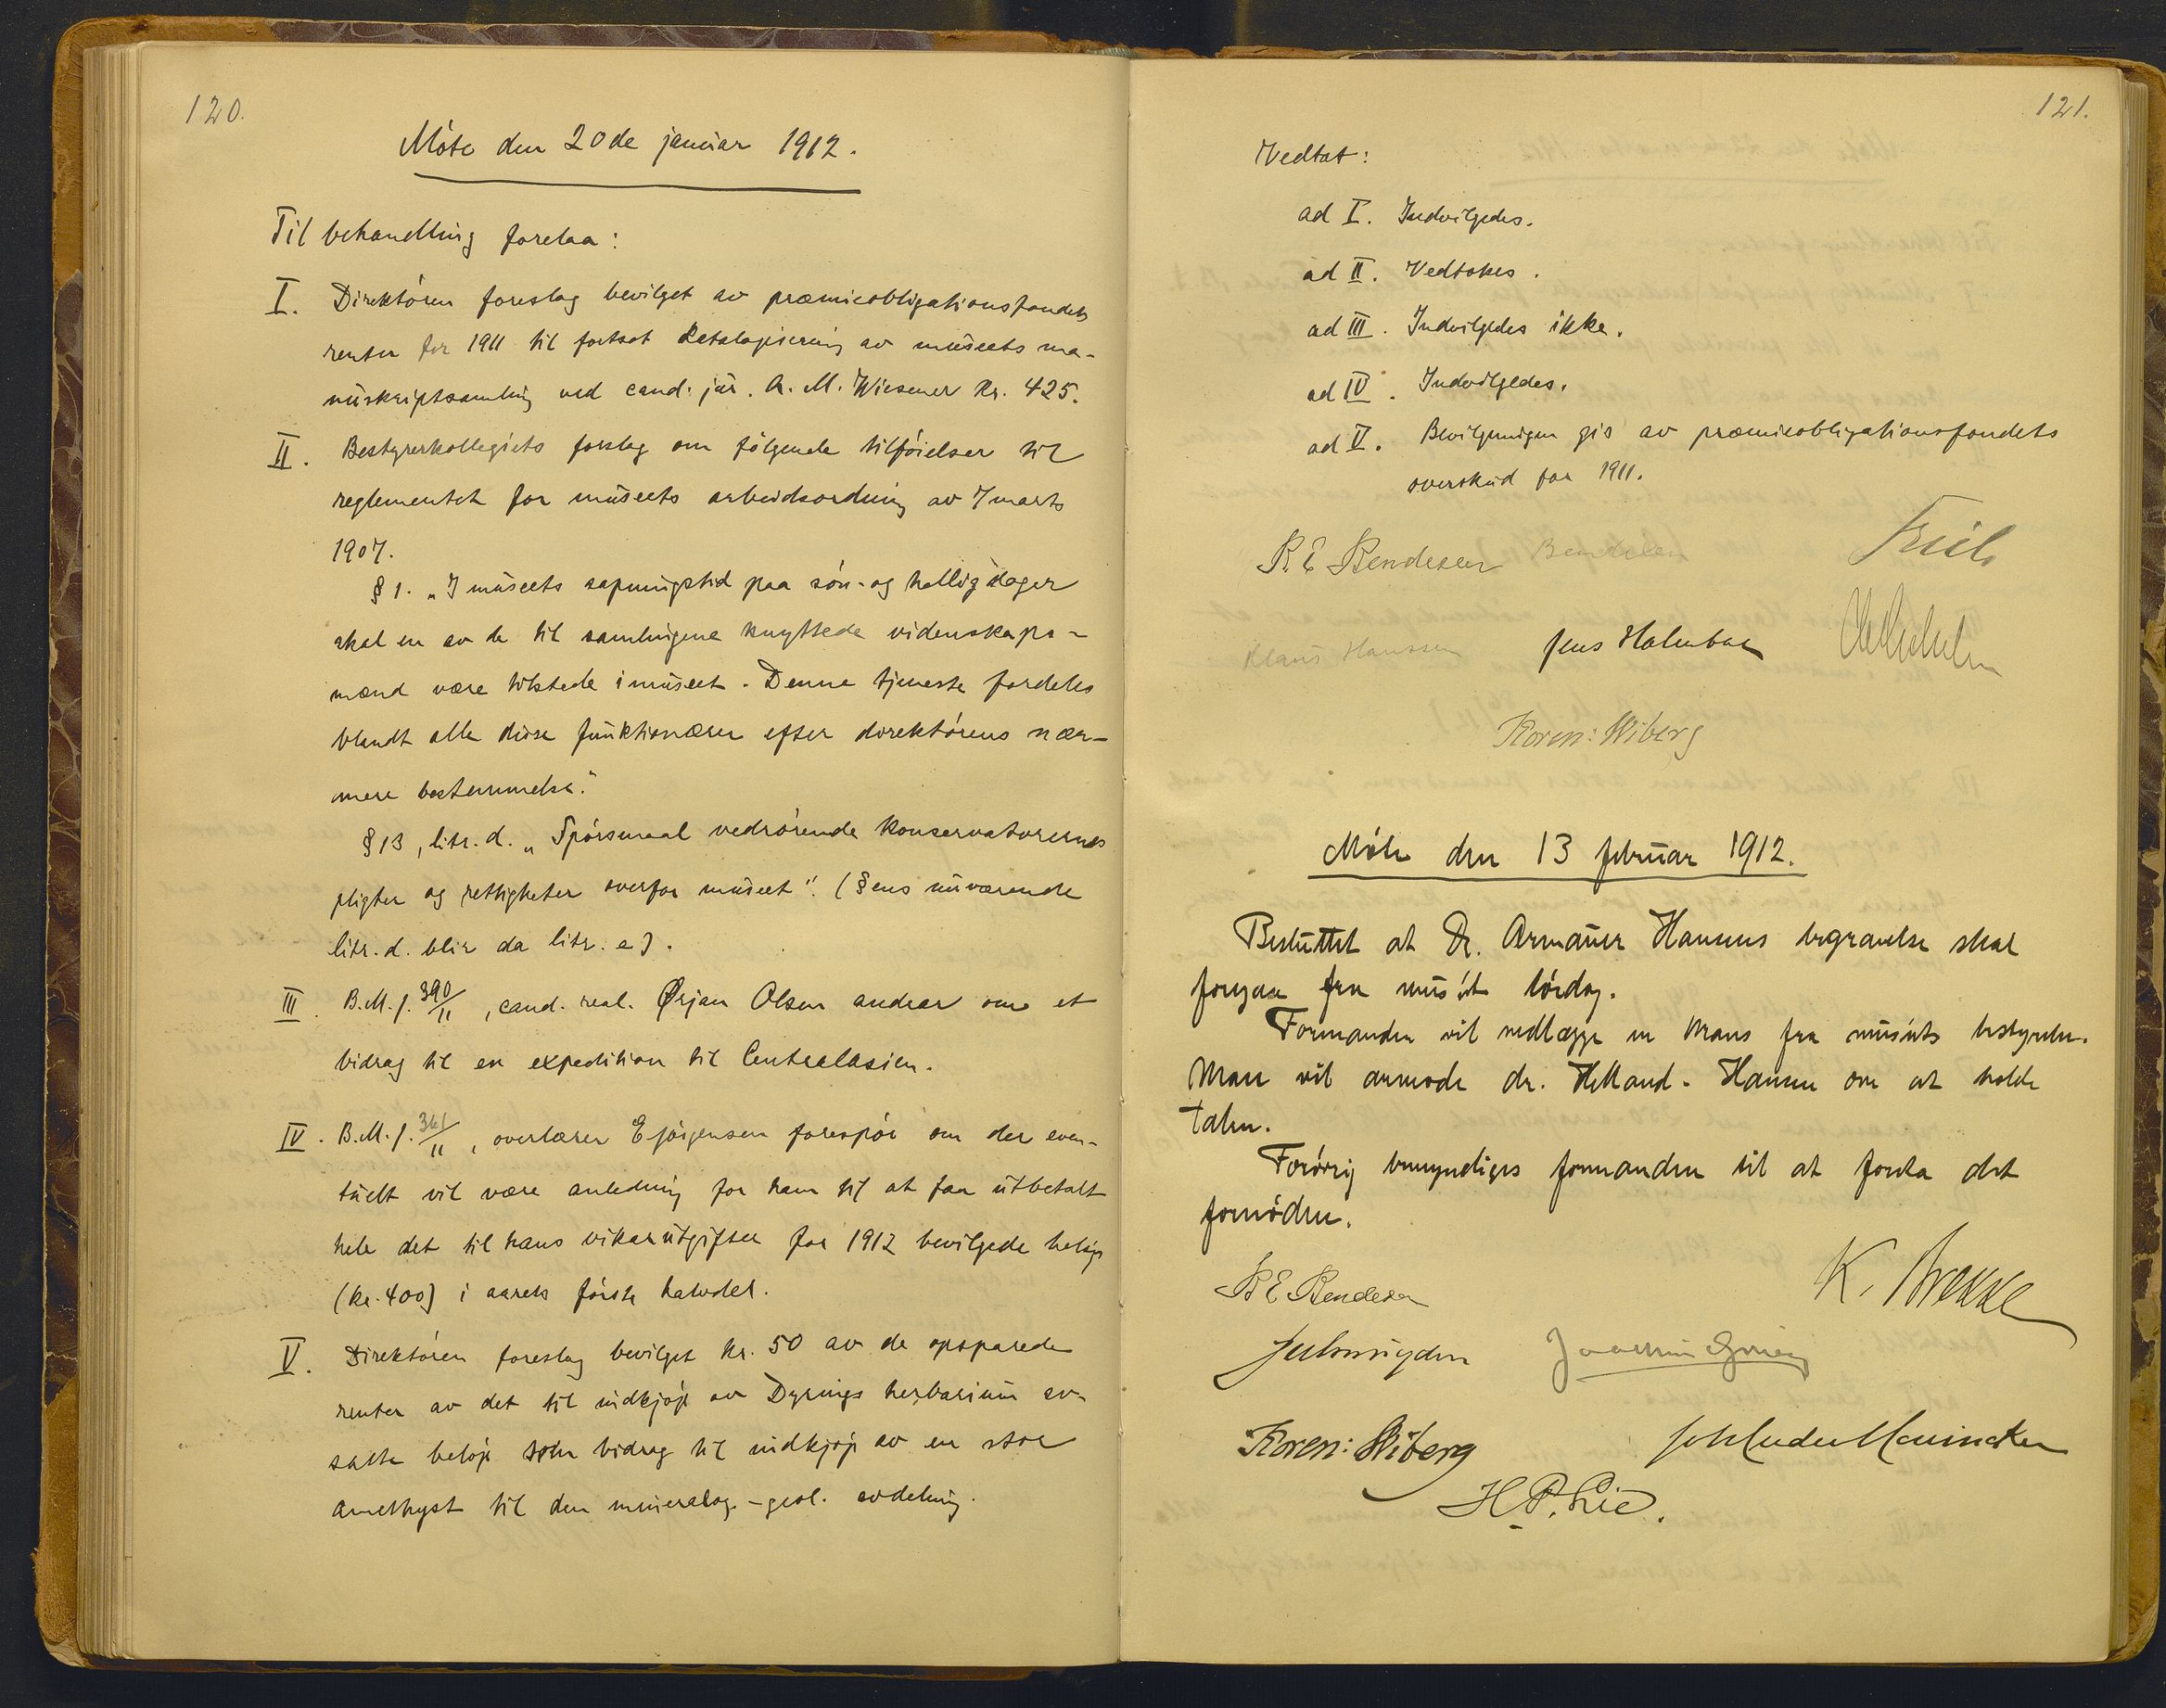 120.
Møte den 20de januar 1912.
Til behandling forelaa:
I. Direktøren foreslog bevilget av præmieobligationsfondets
renter for 1911 til fortsat katalogisering av museets ma-
nuskriptsamling ved cand. jur. A. M. Wiesener kr. 425.
II. Bestyrerkollegiets forslag om følgende tilføielser til
reglementet for museets arbeidsordning av 7 marts
1907.
§ 1. „I museets aapningstid paa søn- og helligdager
skal en av de til samlingene knyttede videnskaps-
mænd være tilstede i museet. Denne tjeneste fordeles
blandt alle disse funktionærer efter direktørens nær-
mere bestemmelse."
§ 13, litr. d. „Spørsmaal vedrørende konservatorernes
pligter og rettigheter overfor museet". (§ens nuværende
litr. d. blir da litr. e).
III. B.M.j. 390/11, cand. real. Ørjan Olsen andrar om et
bidrag til en expedition til Centralasien.
IV. B.M.j. 361/11, overlærer E Jørgensen forespør om der even-
tuelt vil være anledning for ham til at faa utbetalt
hele det til hans vikarutgifter for 1912 bevilgede beløp
(kr. 400) i aarets første halvdel.
V. Direktøren foreslog bevilget kr. 50 av de opsparede
renter av det til indkjøp av Dyrings herbarium av-
satte beløp som bidrag til indkjøp av en stor
amethyst til den mineralog.-geol. avdeling.
121.
Vedtat:
ad I. Indvilgedes.
ad II. Vedtokes.
ad III. Indvilgedes ikke.
ad IV. Indvilgedes.
ad V. Bevilgningen gis av præmieobligationsfondets
overskud for 1911.
B. E. Bendixen Friele
Klaus Hanssen Jens Holmboe
Koren-Wiberg
Møte den 13 februar 1912.
Besluttet at Dr. Armauer Hansens begravelse skal
foregaa fra museet lørdag.
Formanden vil nedlægge en krans fra museets bestyrelse.
Man vil anmode dr. Helland-Hansen om at holde
talen.
Forøvrig bemyndiges formanden til at foreta det
fornødne.
B E Bendixen K. Brekke
Joachim Grieg
Koren-Wiberg
H. P. Lie.